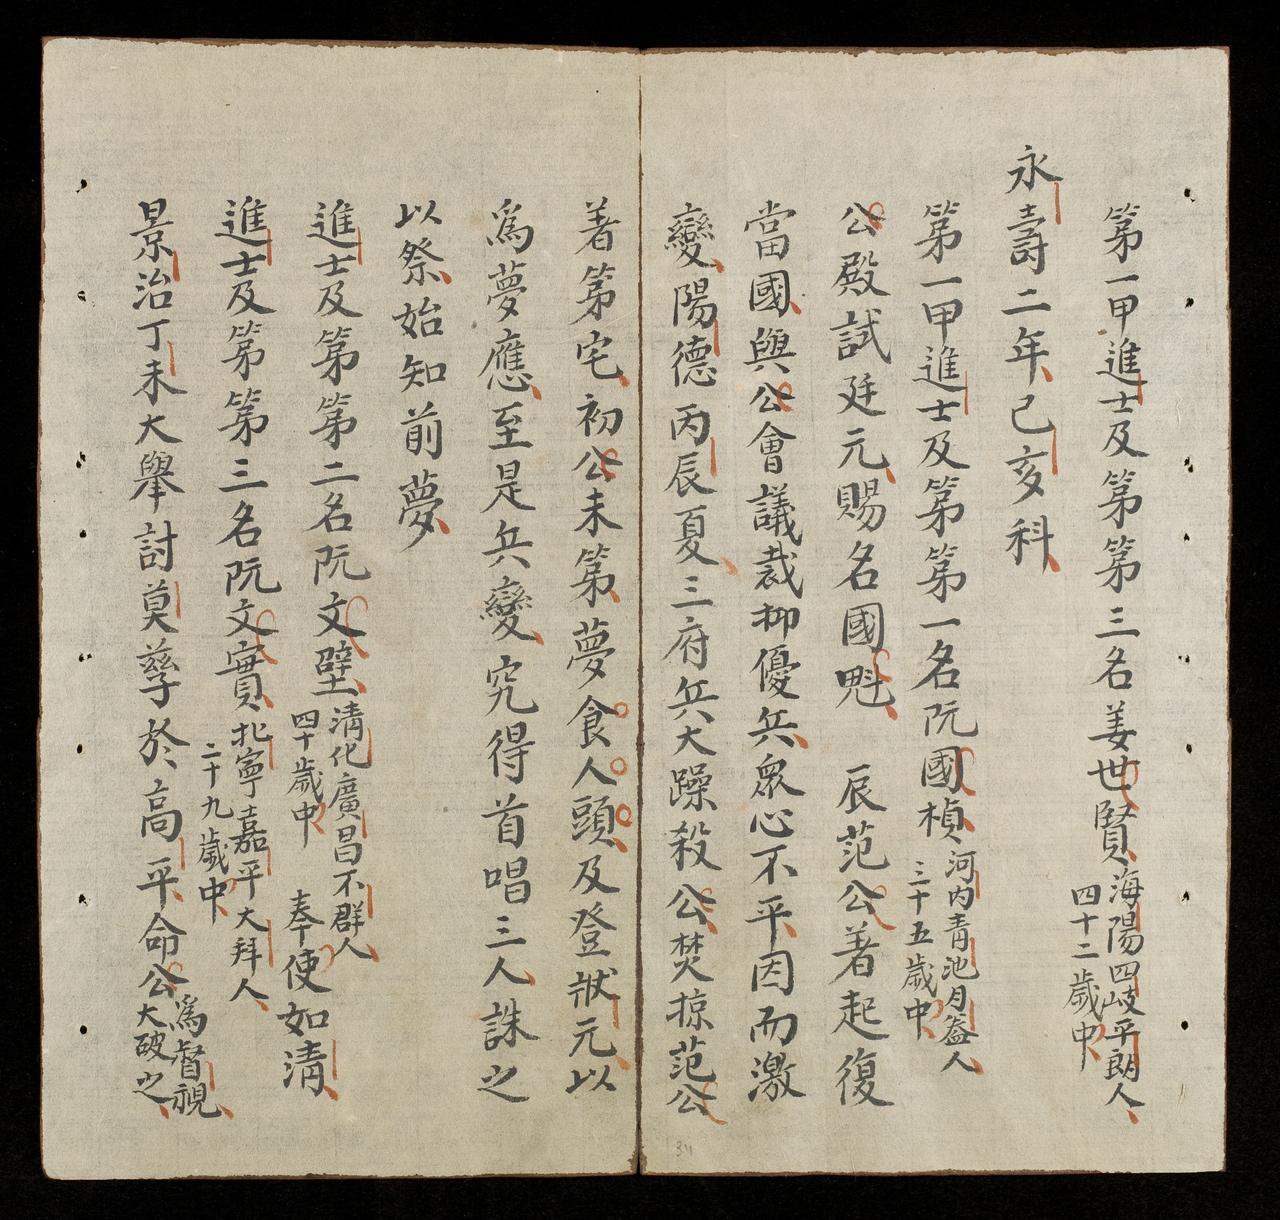 第一甲進士及第第三名姜世賢海陽四岐平朗人四十二歲中
永壽二年己亥科
第一甲進士及第第一名阮國楨河内青池月盎人三十五歲中
公殿試廷元賜名國魁 辰范公著起復
當國與公會議裁抑優兵衆心不平因而激
變陽德丙辰夏三府兵大躁殺公焚掠范公
著第宅初公未第夢食人頭及登狀元以
爲夢應至是兵變究得首唱三人誅之
以祭始知前夢
進士及第第二名阮文璧清化廣昌不群人四十歲中 奉使如清
進士及第第三名阮文實北寧嘉平大拜人二十九歲中
景治丁未大舉討莫孽於高平命公爲督視大破之